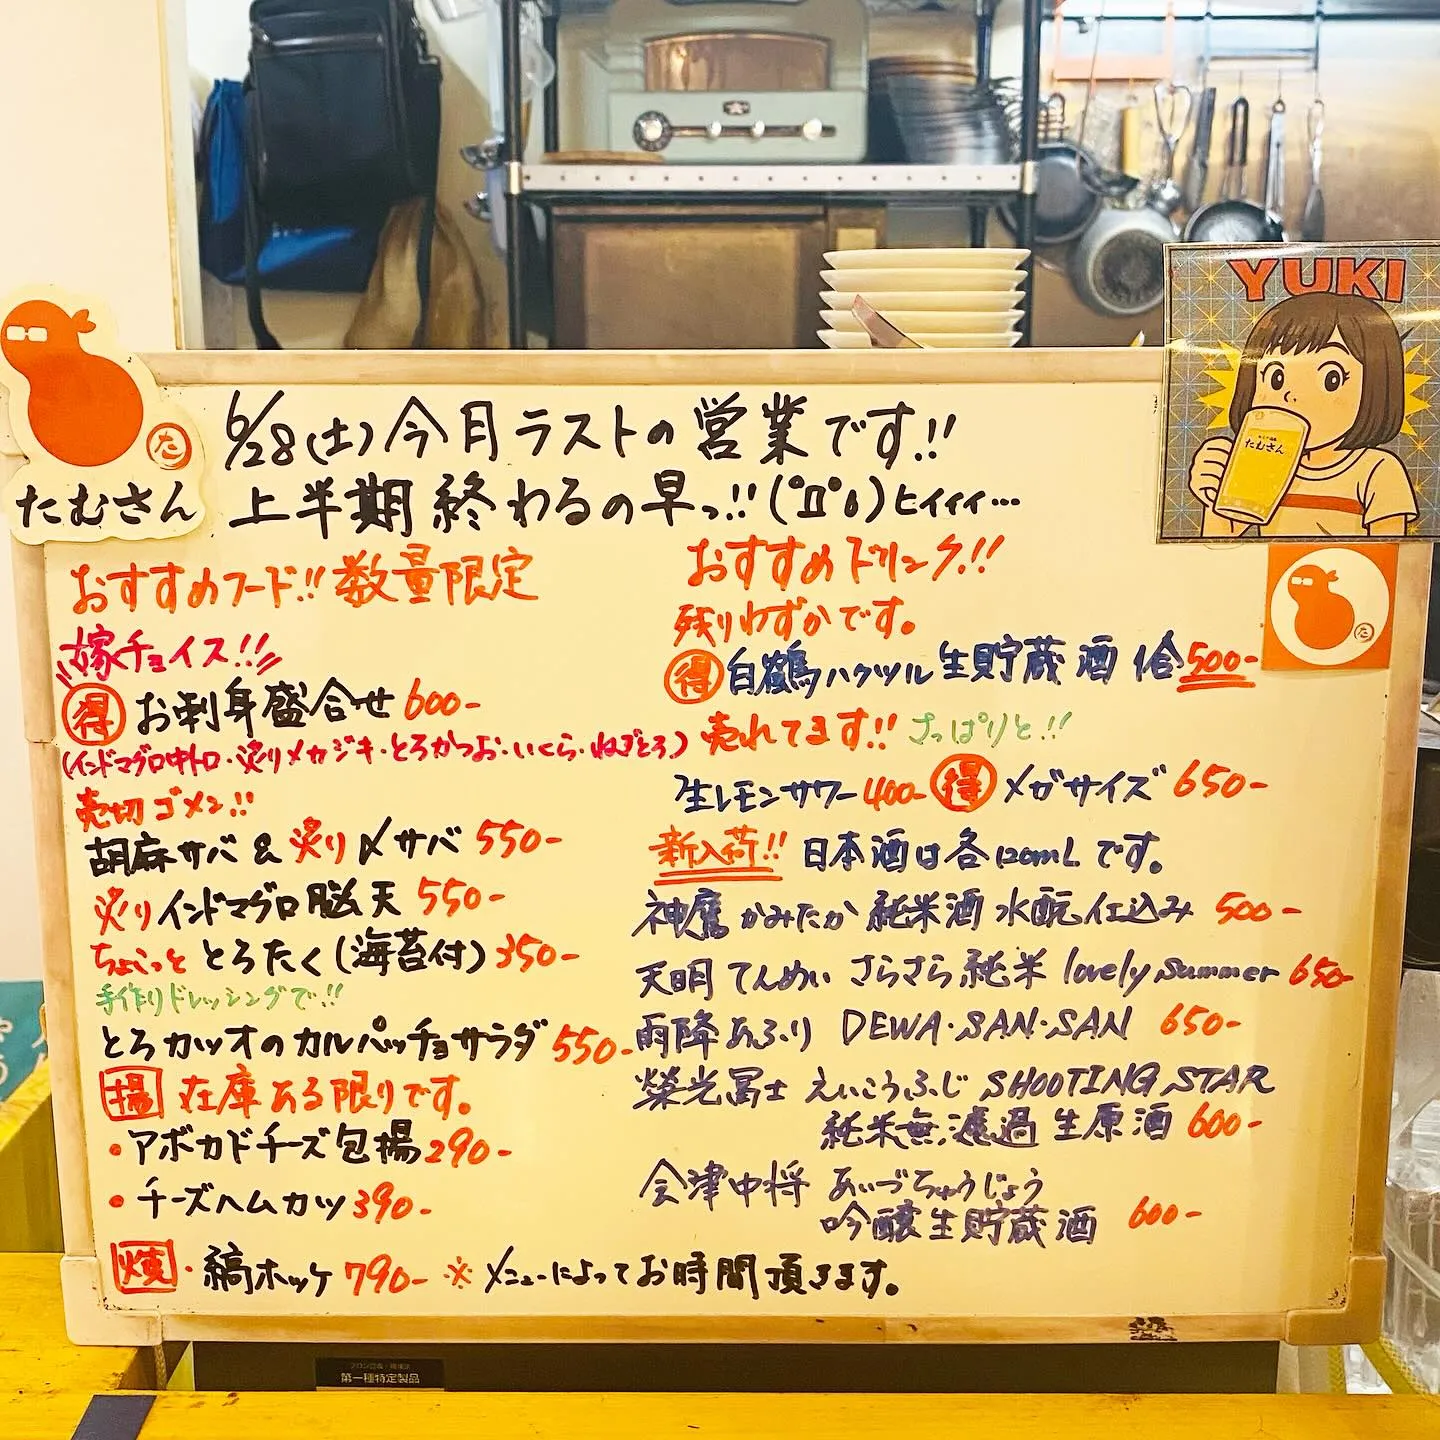 YUKI
たむさん
た
たむさん
6/28(土)今月ラストの営業です!!
上半期終わるの早っ!!(ﾟДﾟ;)ヒィィィ…
おすすめフード!!数量限定
嫁チョイス!!
得 お刺身盛合せ 600-
(インドマグロ中トロ・炙りメカジキ・とろかつお・いくら・ねぎとろ)
売切ゴメン!!
胡麻サバ & 炙り〆サバ 550-
炙りインドマグロ脳天 550-
ちょこっと とろたく(海苔付) 350-
手作りドレッシングで!!
とろカツオのカルパッチョサラダ 550-
揚 在庫ある限りです。
・アボカドチーズ包揚 290-
・チーズハムカツ 390-
焼・縞ホッケ 790- ※メニューによってお時間頂きます。
おすすめドリンク!!
残りわずかです。
得 白鶴ハクツル生貯蔵酒 1合 500-
売れてます!! さっぱりと!!
生レモンサワー 400- 得 メガサイズ 650-
新入荷!! 日本酒は各120mLです。
神鷹 かみたか 純米酒 水酛仕込み 500-
天明 てんめい さらさら純米 lovely summer 650-
雨降 あふり DEWA・SAN・SAN 650-
榮光冨士 えいこうふじ SHOOTING STAR
純米無濾過生原酒 600-
会津中将 あいづちゅうじょう
吟醸生貯蔵酒 600-
た
第一種特定製品